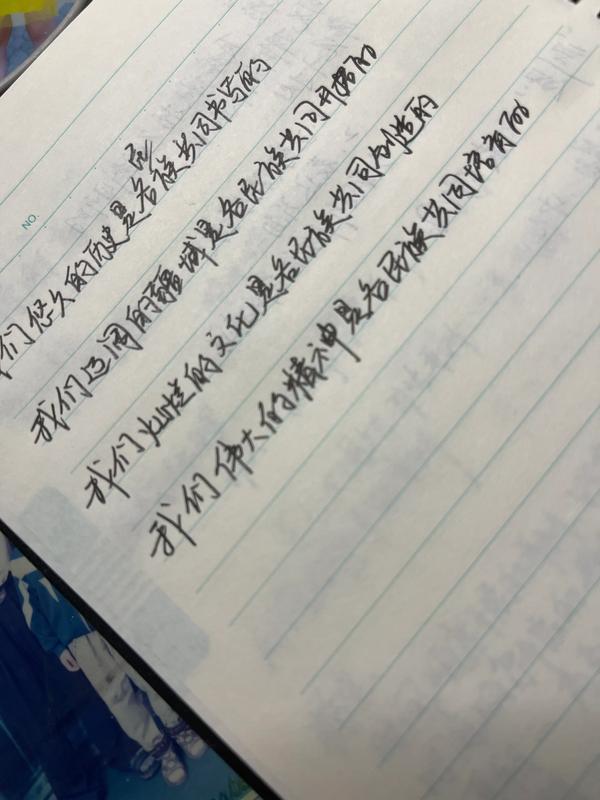 NO.
我们悠久的历史是各民族共同书写的
我们辽阔的疆域是各民族共同开拓的
我们灿烂的文化是各民族共同创造的
我们伟大的精神是各民族共同培育的